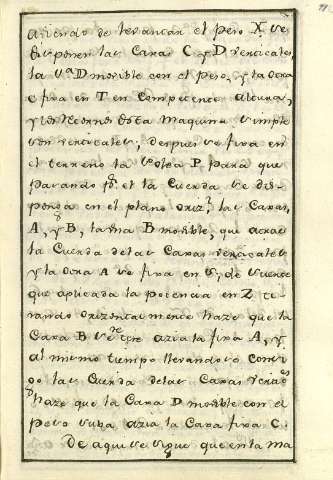 aviendo de levantar el peso X. se
disponen las Caxas C y D verticales,
la una D movible con el peso, y la otra
C fixa en T en competente altura,
y los retornos de esta Maquina simple
son verticales; despues se fixa en
el terreno la Polea P para que
pasando por el la Cuerda se dis-
ponga en el plano orizontal las Caxas,
A, y B, la una B movible, que atrae
la Cuerda de las Caxas verticales
y la otra A se fixa en S, de suerte
que aplicada la potencia en Z ti-
rando orizontalmente haze que la
Caxa B se azia la fixa A, y
al mismo tiempo llevandose consi-
go las Cuerda delas Caxas verticales
haze que la Caxa D movible con el
peso suba azia la Caxa fixa C.
De aqui se sigue que en la Ma